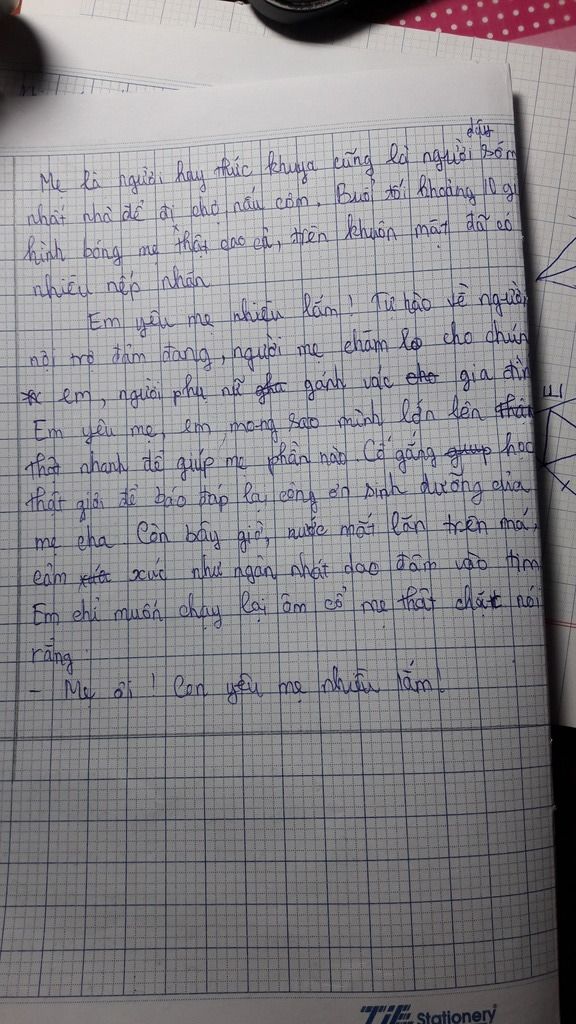 dậy
Mẹ là người hay thức khuya cũng là người sớm
nhất nhà để đi chợ nấu cơm. Buổi tối khoảng 10 gi
hình bóng mẹ thật cao cả, trên khuôn mặt đã có
nhiều nếp nhăn
Em yêu mẹ nhiều lắm! Tự hào về người
nội trợ đảm đang, người mẹ chăm lo cho chún
em, người phụ nữ gánh vác gia đìn
Em yêu mẹ, em mong sao mình lớn lên
thật nhanh để giúp mẹ phần nào Cố gắng học
thật giỏi để báo đáp lại công ơn sinh dưỡng của
mẹ cha Còn bây giờ, nước mắt lăn trên má,
cảm xúc như ngàn nhát dao đâm vào tim
Em chỉ muốn chạy lại ôm cổ mẹ thật chặt nói
rằng
- Mẹ ơi! Con yêu mẹ nhiều lắm!
TiE Stationery